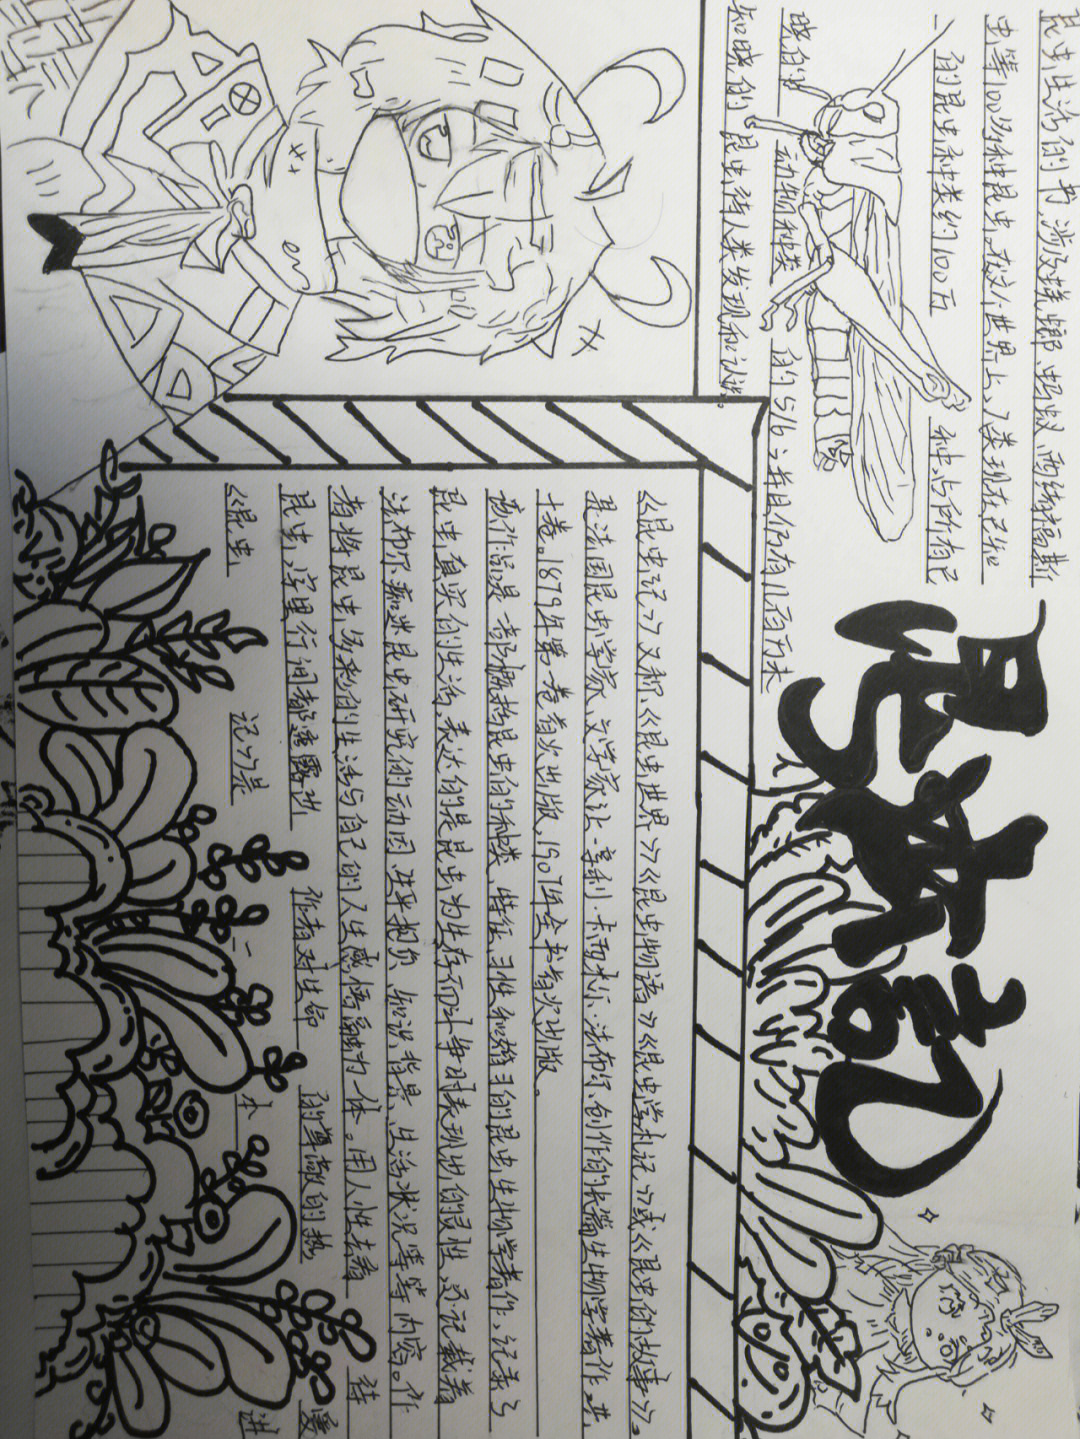 昆虫记
昆虫生活的书,涉及蜣螂、蚂蚁、西绪福斯
虫等100多种昆虫。在这个世界上,人类现在已知
的昆虫种类约100万 种,占所有已
知的 动物种类 的5/6;并且仍有几百万未
知晓的昆虫待人类发现和认识。
《昆虫记》又称《昆虫世界》《昆虫物语》《昆虫学札记》或《昆虫的故事》。
是法国昆虫学家、文学家让-亨利·卡西米尔·法布尔创作的长篇生物学著作,共
十卷。1879年第一卷首次出版,1907年全书首次出版。
该作品是一部概括昆虫的种类、特征、习性和婚习的昆虫生物学著作,记录了
昆虫真实的生活,表达的是昆虫为生存而斗争时表现出的灵性,还记载着
法布尔痴迷昆虫研究的动因、生平抱负、知识背景、生活状况等等内容。作
者将昆虫多彩的生活与自己的人生感悟融为一体。用人性去看 待
昆虫,字里行间都透露出 作者对生命 的尊敬的热 爱
《昆虫 记》是 一 本 讲